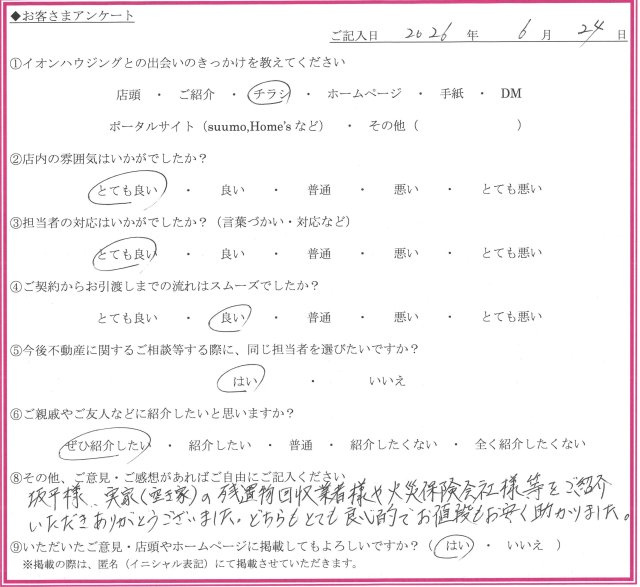 ◆お客さまアンケート
ご記入日 2026 年 6 月 24 日
①イオンハウジングとの出会いのきっかけを教えてください
店頭 ・ ご紹介 ・ チラシ ・ ホームページ ・ 手紙 ・ DM
ポータルサイト（suumo,Home's など） ・ その他（ ）
②店内の雰囲気はいかがでしたか？
とても良い ・ 良い ・ 普通 ・ 悪い ・ とても悪い
③担当者の対応はいかがでしたか？（言葉づかい・対応など）
とても良い ・ 良い ・ 普通 ・ 悪い ・ とても悪い
④ご契約からお引渡しまでの流れはスムーズでしたか？
とても良い ・ 良い ・ 普通 ・ 悪い ・ とても悪い
⑤今後不動産に関するご相談等する際に、同じ担当者を選びたいですか？
はい ・ いいえ
⑥ご親戚やご友人などに紹介したいと思いますか？
ぜひ紹介したい ・ 紹介したい ・ 普通 ・ 紹介したくない ・ 全く紹介したくない
⑧その他、ご意見・ご感想があればご自由にご記入ください
坂平様、実家（空き家）の残置物回収業者様や火災保険会社様等をご紹介
いただきありがとうございました。どちらもとても良心的でお値段もお安く助かりました。
⑨いただいたご意見・店頭やホームページに掲載してもよろしいですか？（ はい ・ いいえ ）
※掲載の際は、匿名（イニシャル表記）にて掲載させていただきます。